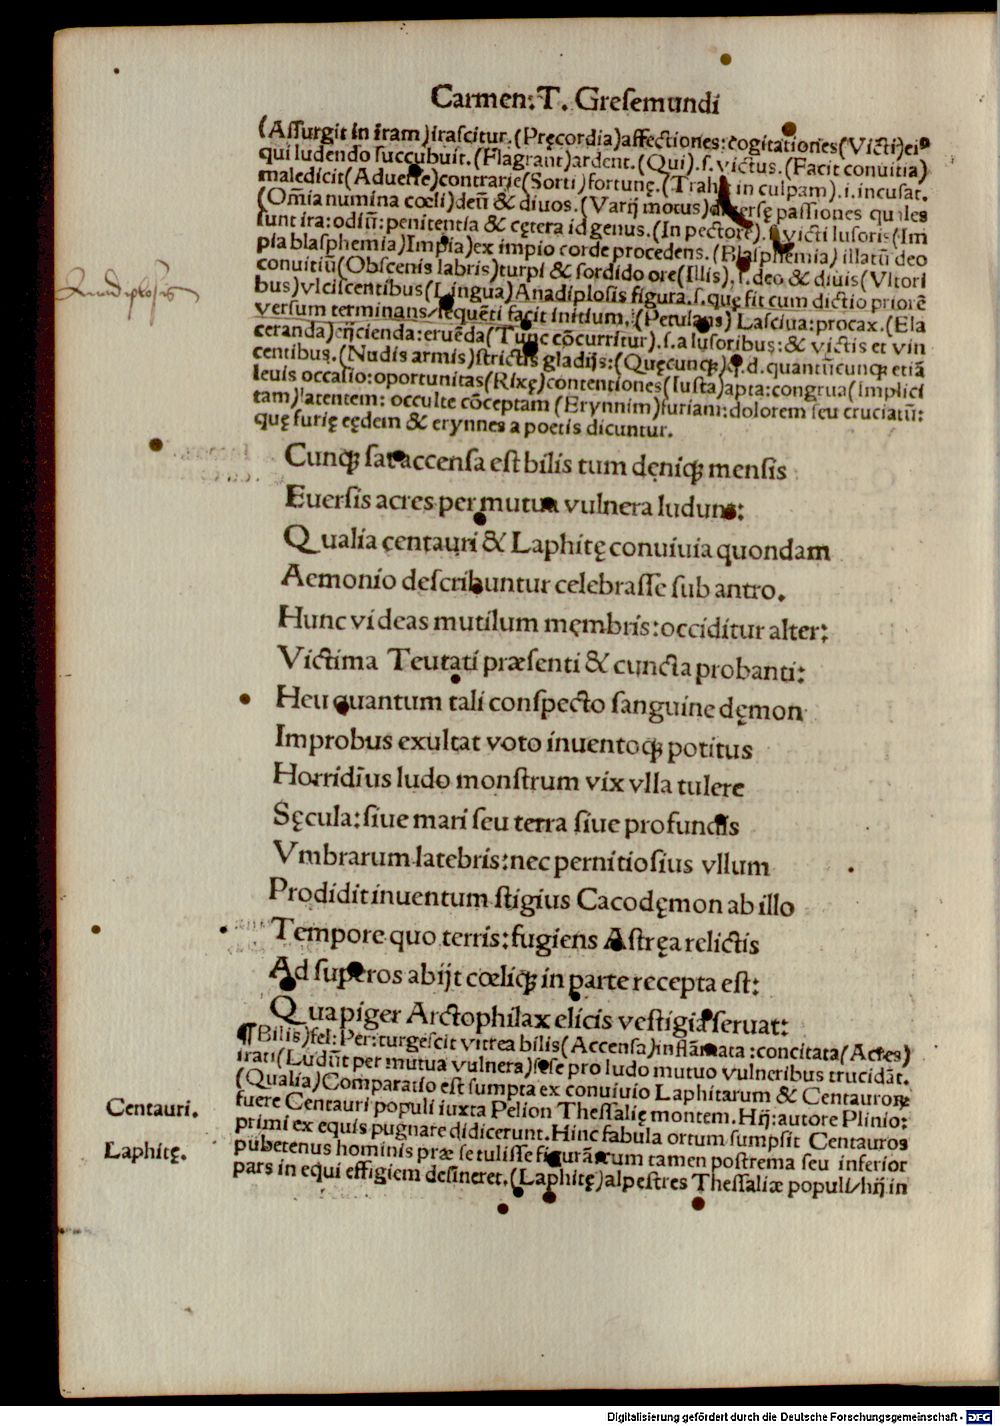 Carmen: T. Gresemundi
(Aſſurgit in iram)iraſcitur.(Pręcordia)affectiones:cogitationes(Victi)eiꝰ
qui ludendo ſuccubuit.(Flagrant)ardent.(Qui).ſ.victus.(Facit conuitia)
maledicit(Aduerſe)contrarie(Sorti)fortunę.(Trahit in culpam).i.incuſat.
(Om̄ia numina cœli)deū & diuos.(Varij motus)diuerſę paſſiones quales
ſunt ira:odiū:penitentia & cętera id genus.(In pectore).ſ.victi luſoris(Im
pia blaſphemia)Impia)ex impio corde procedens.(Blaſphemia)illatū deo
conuitiū(Obſcenis labris)turpi & ſordido ore(Illis).ſ.deo & diuis(Vltori
bus)vlciſcentibus(Lingua)Anadiploſis figura.ſ.quę fit cum dictio priorē
Anadiplosis
verſum terminans/ſequēti facit initium.(Petulans)Laſciua:procax.(Ela
ceranda)eijcienda:eruēda(Tunc cōcurritur).ſ.a luſoribus:& victis et vin
centibus.(Nudis armis)ſtrictis gladijs:(Quęcunqꝫ)q.d.quantūcunqꝫ etiā
leuis occaſio:oportunitas(Rixę)contentiones(Iuſta)apta:congrua(Implici
tam)latentem: occulte cōceptam (Erynnim)furiam:dolorem ſeu cruciatū:
quę furię eędem & erynnes a poetis dicuntur.
Cunqꝫ ſat accenſa eſt bilis tum deniqꝫ menſis
Euerſis acres per mutua vulnera ludunt:
Qualia centauri & Laphitę conuiuia quondam
Aemonio deſcribuntur celebraſſe ſub antro.
Hunc videas mutilum membris:occiditur alter:
Victima Teutati præſenti & cuncta probanti:
Heu quantum tali conſpecto ſanguine dęmon
Improbus exultat voto inuentoqꝫ potitus
Horridius ludo monſtrum vix vlla tulere
Sęcula:ſiue mari ſeu terra ſiue profundis
Vmbrarum latebris:nec pernitioſius vllum
Prodidit inuentum ſtigius Cacodęmon ab illo
Tempore quo terris:fugiens Aſtręa relictis
Ad ſuperos abijt cœliqꝫ in parte recepta eſt:
Qua piger Arctophilax elicis veſtigia ſeruat:
¶Bilis)fel:Per:turgeſcit vitrea bilis(Accenſa)inflāmata:concitata(Acres)
irati(Ludūt per mutua vulnera)ſeſe pro ludo mutuo vulneribus trucidāt.
(Qualia)Comparatio eſt ſumpta ex conuiuio Laphitarum & Centaurorꝝ
fuere Centauri populi iuxta Pelion Theſſalię montem.Hij:autore Plinio:
Centauri.
primi ex equis pugnare didicerunt.Hinc fabula ortum ſumpſit Centauros
pubetenus hominis præ ſe tuliſſe figurā:quum tamen poſtrema ſeu inferior
Laphitę.
pars in equi effigiem deſineret.(Laphitę)alpeſtres Theſſaliæ populi/hij in
Digitalisierung gefördert durch die Deutsche Forschungsgemeinschaft - DFG